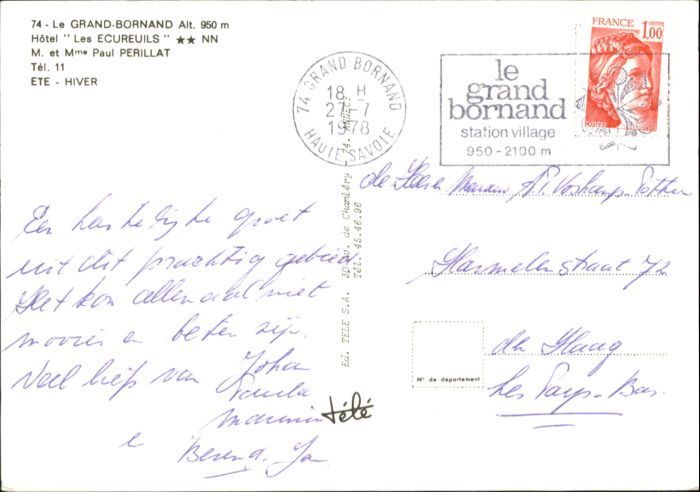 74 - Le GRAND-BORNAND Alt. 950 m
Hôtel " Les ECUREUILS " ★★ NN
M. et Mme Paul PERILLAT
Tél. 11
ETE - HIVER
74 GRAND BORNAND
18 H
27-7
1978
HAUTE-SAVOIE
le
grand
bornand
station village
950-2100 m
FRANCE
1,00
POSTES
Een hartelijke groet
uit dit prachtig gebied.
Het kon allemaal niet
mooier en beter zijn.
Veel liefs van Johan
Berend-Jan
Ed. TELE S.A. de Chambéry - 74. ANNECY
Tél. 45.46.96
télé
de Heer Voskamp
Harmelenstraat 72
den Haag
Les Pays-Bas.
N° de departement